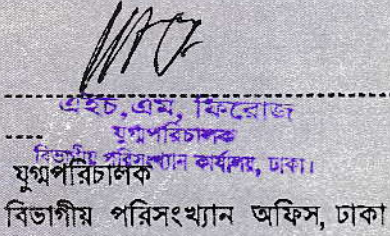 এইচ, এম, ফিরোজ
যুগ্মপরিচালক
বিভাগীয় পরিসংখ্যান কার্যালয়, ঢাকা।
যুগ্মপরিচালক
বিভাগীয় পরিসংখ্যান অফিস, ঢাকা